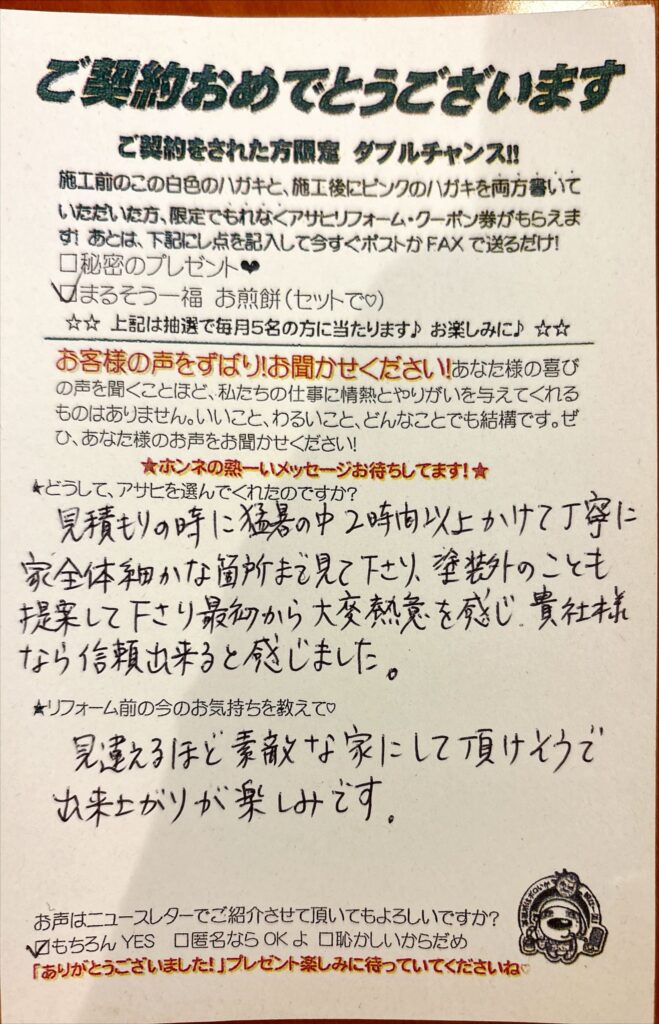 ご契約おめでとうございます
ご契約をされた方限定 ダブルチャンス!!
施工前のこの白色のハガキと、施工後にピンクのハガキを両方書いて
いただいた方、限定でもれなくアサヒリフォーム・クーポン券がもらえま
す! あとは、下記にレ点を記入して今すぐポストか FAX で送るだけ!
□秘密のプレゼント♥
☑まるそう一福 お煎餅(セットで♡)
☆☆ 上記は抽選で毎月5名の方に当たります♪ お楽しみに♪ ☆☆
お客様の声をずばり!お聞かせください!あなた様の喜び
の声を聞くことほど、私たちの仕事に情熱とやりがいを与えてくれる
ものはありません。いいこと、わるいこと、どんなことでも結構です。ぜ
ひ、あなた様のお声をお聞かせください!
★ホンネの熱ーいメッセージお待ちしてます!★
★どうして、アサヒを選んでくれたのですか?
見積もりの時に猛暑の中2時間以上かけて丁寧に
家全体細かな箇所まで見て下さり、塗装外のことも
提案して下さり最初から大変熱意を感じ、貴社様
なら信頼出来ると感じました。
★リフォーム前の今のお気持ちを教えて♡
見違えるほど素敵な家にして頂けそうで
出来上がりが楽しみです。
お声はニュースレターでご紹介させて頂いてもよろしいですか?
☑もちろん YES □匿名なら OK よ □恥かしいからだめ
「ありがとうございました!」プレゼント楽しみに待っていてくださいね♡